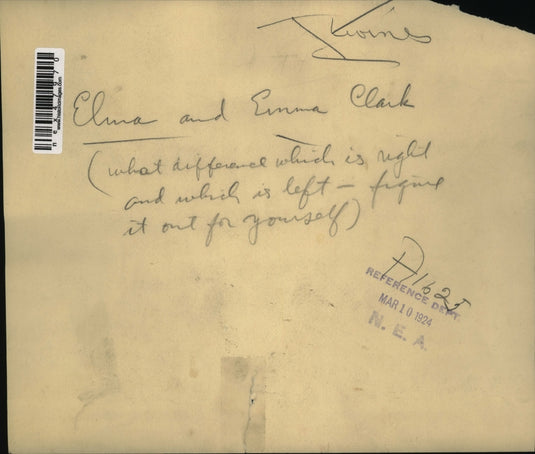 Twins
Elma and Emma Clark
(what difference which is right
and which is left — figure
it out for yourself)
A1625
REFERENCE DEPT.
MAR 10 1924
N. E. A.